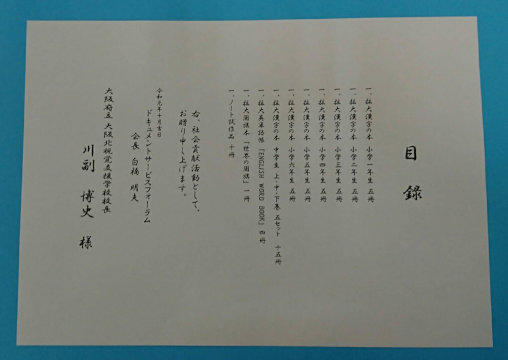 目録
一、拡大漢字の本 小学一年生 五冊
一、拡大漢字の本 小学二年生 五冊
一、拡大漢字の本 小学三年生 五冊
一、拡大漢字の本 小学四年生 五冊
一、拡大漢字の本 小学五年生 五冊
一、拡大漢字の本 小学六年生 五冊
一、拡大漢字の本 中学生 上・中・下巻 五セット 十五冊
一、拡大英単語帳 「ENGLISH WORD BOOK」 四冊
一、拡大国旗本 「世界の国旗」 一冊
一、ノート試作品 十冊
右、社会貢献活動として、
お贈り申し上げます。
令和元年十月吉日
ドキュメントサービスフォーラム
会長 白橋 明夫
大阪府立 大阪北視覚支援学校校長
川副 博史 様